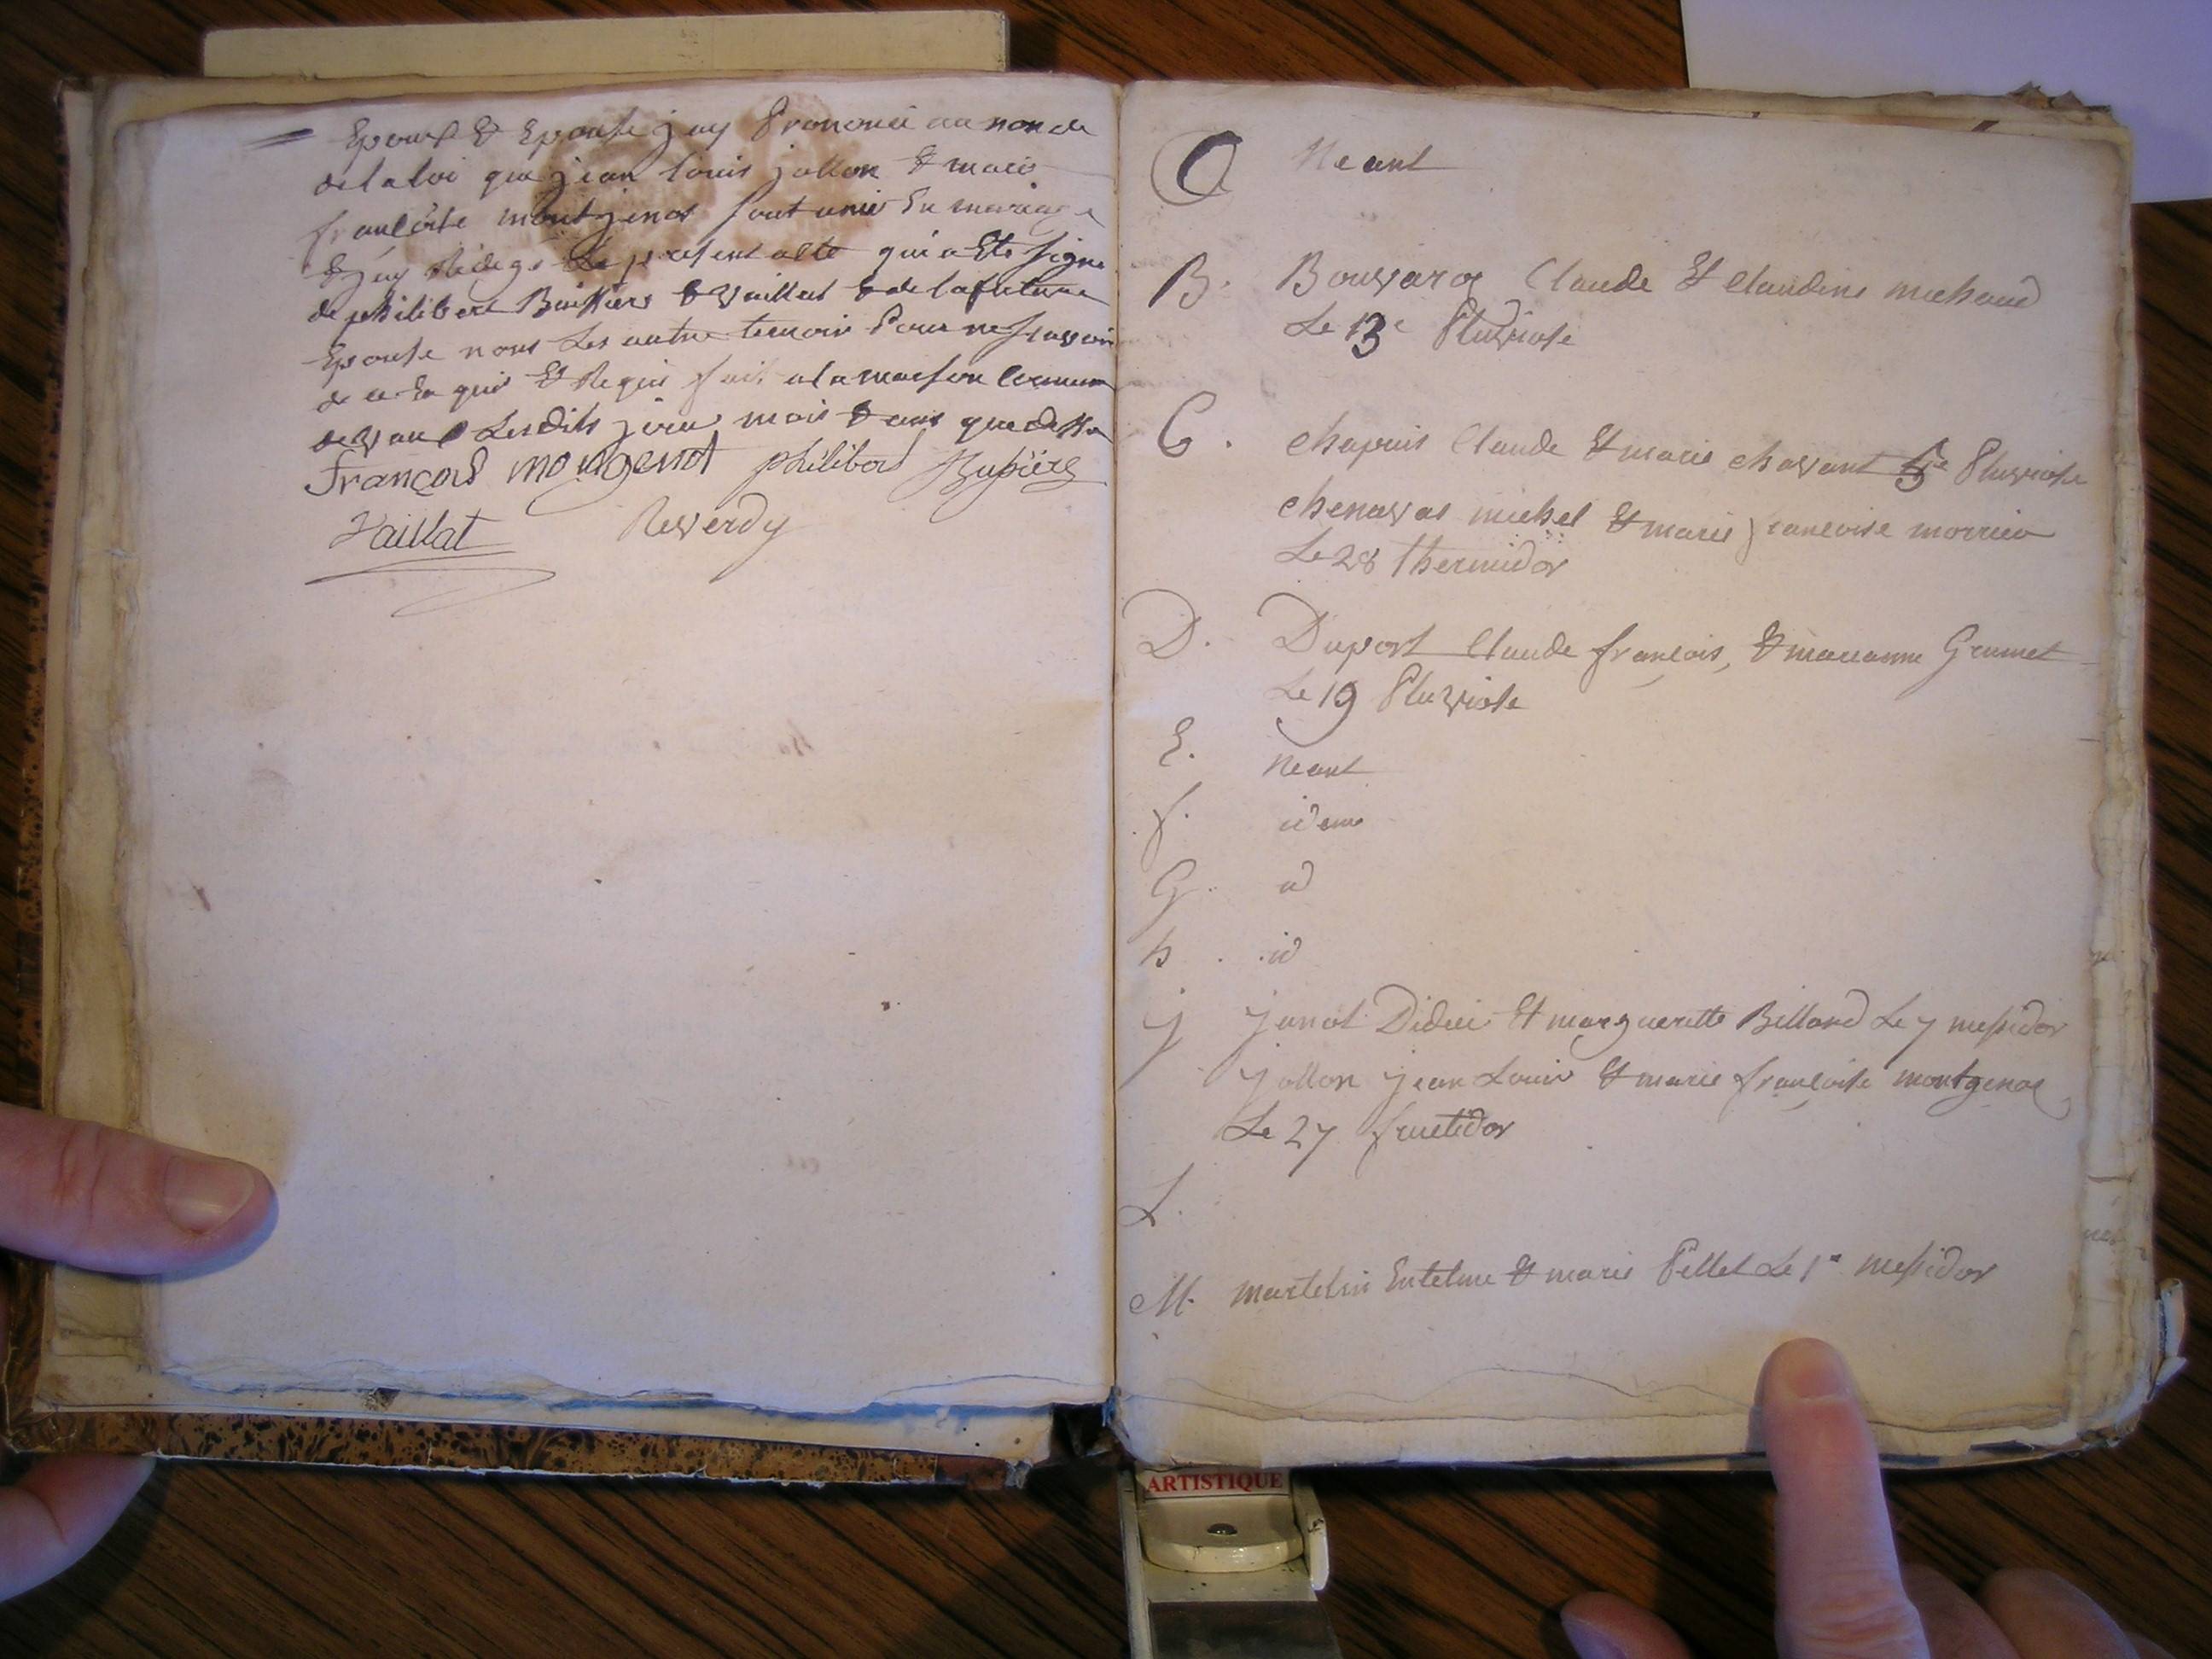 Epoux & Epouse jay Prononcé au nom de
de la loi que jean louis jollon & marie
françoise montgenot sont unis En mariage
& jay Redigé Le present acte qui a Eté signé
de philibert Bussiere & Vaillat & de la future
Epouse nous Les autre temoin Pour ne scavoir
de ce En quis & Requis fait a la maison Commune
de Lesdits jour mois & ans que dessu
françois mongenot philibert Bussiere
Vaillat Reverdy
A Neant
B. Bouvard Claude Et Claudine michaud
Le 13e Pluviose
C. Chapuis Claude & marie Chavant 5e Pluviose
Chenavas michel & marie francoise
Le 28 thermidor
D. Duport Claude françois, & marianne Grumet
Le 19 Pluviose
E. Neant
f. idem
G. id
h. id
J Janot Didier & margueritte Billard Le 7 messidor
Jollon Jean Louis & marie françoise montgenot
Le 27 fructidor
L.
M. martelin Entelme & marie Pillet Le 1er messidor
ARTISTIQUE